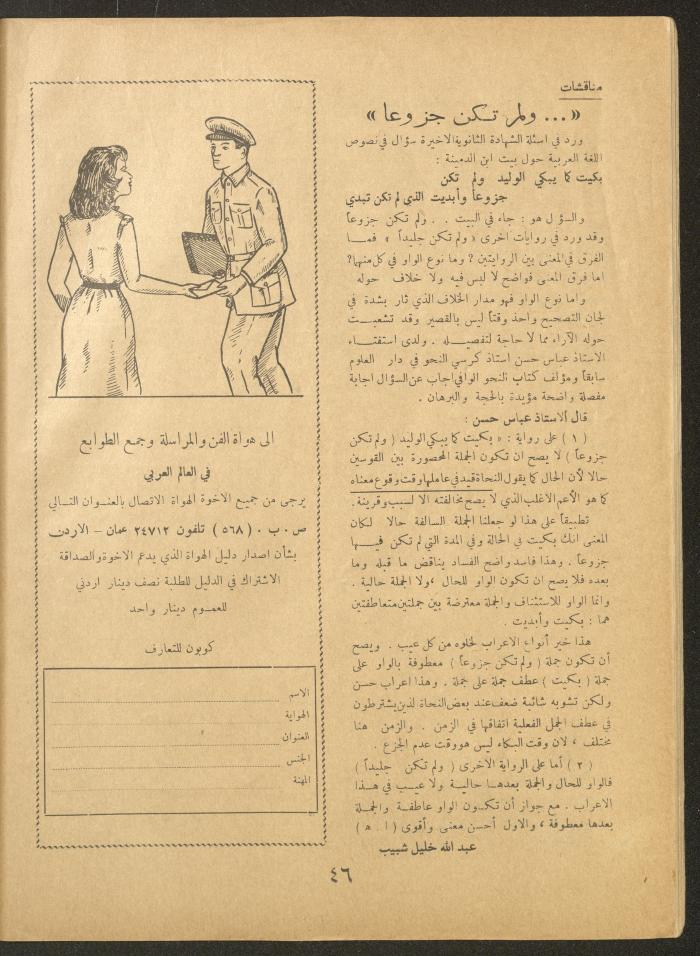 مناقشات
«... ولم تكن جزوعا»
ورد في اسئلة الشهادة الثانوية الاخيرة سؤال في نصوص
اللغة العربية حول بيت ابن الدمينة :
بكيت كما يبكي الوليد ولم تكن
جزوعاً وأبديت الذي لم تكن تبدي
والسؤل هو : جاء في البيت . . ولم تكن جزوعاً
وقد ورد في روايات اخرى « ولم تكن جليداً » فمــا
الفرق في المعنى بين الروايتين ؟ وما نوع الواو في كل منهما؟
اما فرق المعنى فواضح لا لبس فيه ولا خلاف حوله
واما نوع الواو فهو مدار الخلاف الذي ثار بشدة في
لجان التصحيح واخذ وقتاً ليس بالقصير وقد تشعبــت
حوله الآراء مما لا حاجة لتفصيــله . ولدى استفتــاء
الاستاذ عباس حسن استاذ كرسي النحو في دار العلوم
سابقاً ومؤلف كتاب النحو الوافي اجاب عن السؤال اجابة
مفصلة واضحة مؤيدة بالحجة والبرهان .
قال الاستاذ عباس حسن :
( ١ ) على رواية : « بكيت كما يبكي الوليد ( ولم تكن
جزوعاً ) لا يصح ان تكون الجملة المحصورة بين القوسين
حالا لأن الحال كما يقول النحاة قيد في عاملها وقت وقوع معناه
كما هو الأعم الاغلب الذي لا يصح مخالفته الا لسبب وقرينة .
تطبيقاً على هذا لو جعلنا الجملة السالفة حالا لكان
المعنى انك بكيت في الحالة وفي المدة التي لم تكن فيــها
جزوعاً . وهذا فاسد واضح الفساد يناقض ما قبله وما
بعده فلا يصح ان تكون الواو للحال ، ولا الجملة حالية .
وانما الواو للاستئناف والجملة معترضة بين جملتين متعاطفتين
هما : بكيت وأبديت .
هذا خير أنواع الاعراب لخلوه من كل عيب . ويصح
أن تكون جملة ( ولم تكن جزوعاً ) معطوفة بالواو على
جملة ( بكيت ) عطف جملة على جملة . وهذا اعراب حسن
ولكن تشوبه شائبة ضعف عند بعض النحاة لذين يشترطون
في عطف الجمل الفعلية اتفاقها في الزمن . والزمن هنا
مختلف ، لان وقت البكاء ليس هو وقت عدم الجزع .
( ٢ ) أما على الرواية الاخرى ( ولم تكن جليداً )
فالواو للحال والجملة بعدهــا حاليــة ولا عيــب في هــذا
الاعراب . مع جواز أن تكــون الواو عاطفــة والجملــة
بعدها معطوفة ، والاول أحسن معنى وأقوى ( ا . ه )
عبد الله خليل شبيب
الى هواة الفن والمراسلة وجمع الطوابع
في العالم العربي
يرجى من جميع الاخوة الهواة الاتصال بالعنــوان التــالي
ص . ب . ( ٥٦٨ ) تلفون ٢٤٧١٢ عمان – الاردن
بشأن اصدار دليل الهواة الذي يدعم الاخوة والصداقة
الاشتراك في الدليل للطلبة نصف دينار اردني
للعمــوم دينار واحد
كوبون للتعارف
الاسم
الهواية
العنوان
الجنس
المهنة
٤٦